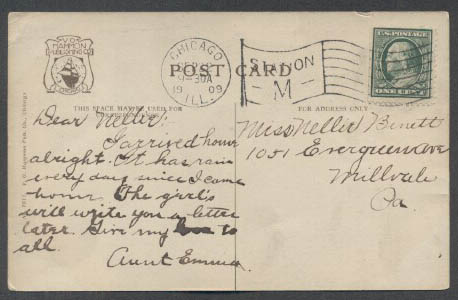 V.O.
HAMMON
PUBLISHING CO
CHICAGO
CHICAGO
SEP
30A
1909
ILL.
STATION
M
U.S. POSTAGE
ONE CENT
POST CARD
THIS SPACE MAY BE USED FOR
FOR ADDRESS ONLY
Dear Nellie:
I arrived home
alright. It has rain
every day since I came
home. The girls
will write you a letter
later. Give my love to
all.
Aunt Emma.
Miss Nellie Benett
1051 Evergreen Ave
Millvale
Pa.
V. O. Hammon Pub. Co., Chicago